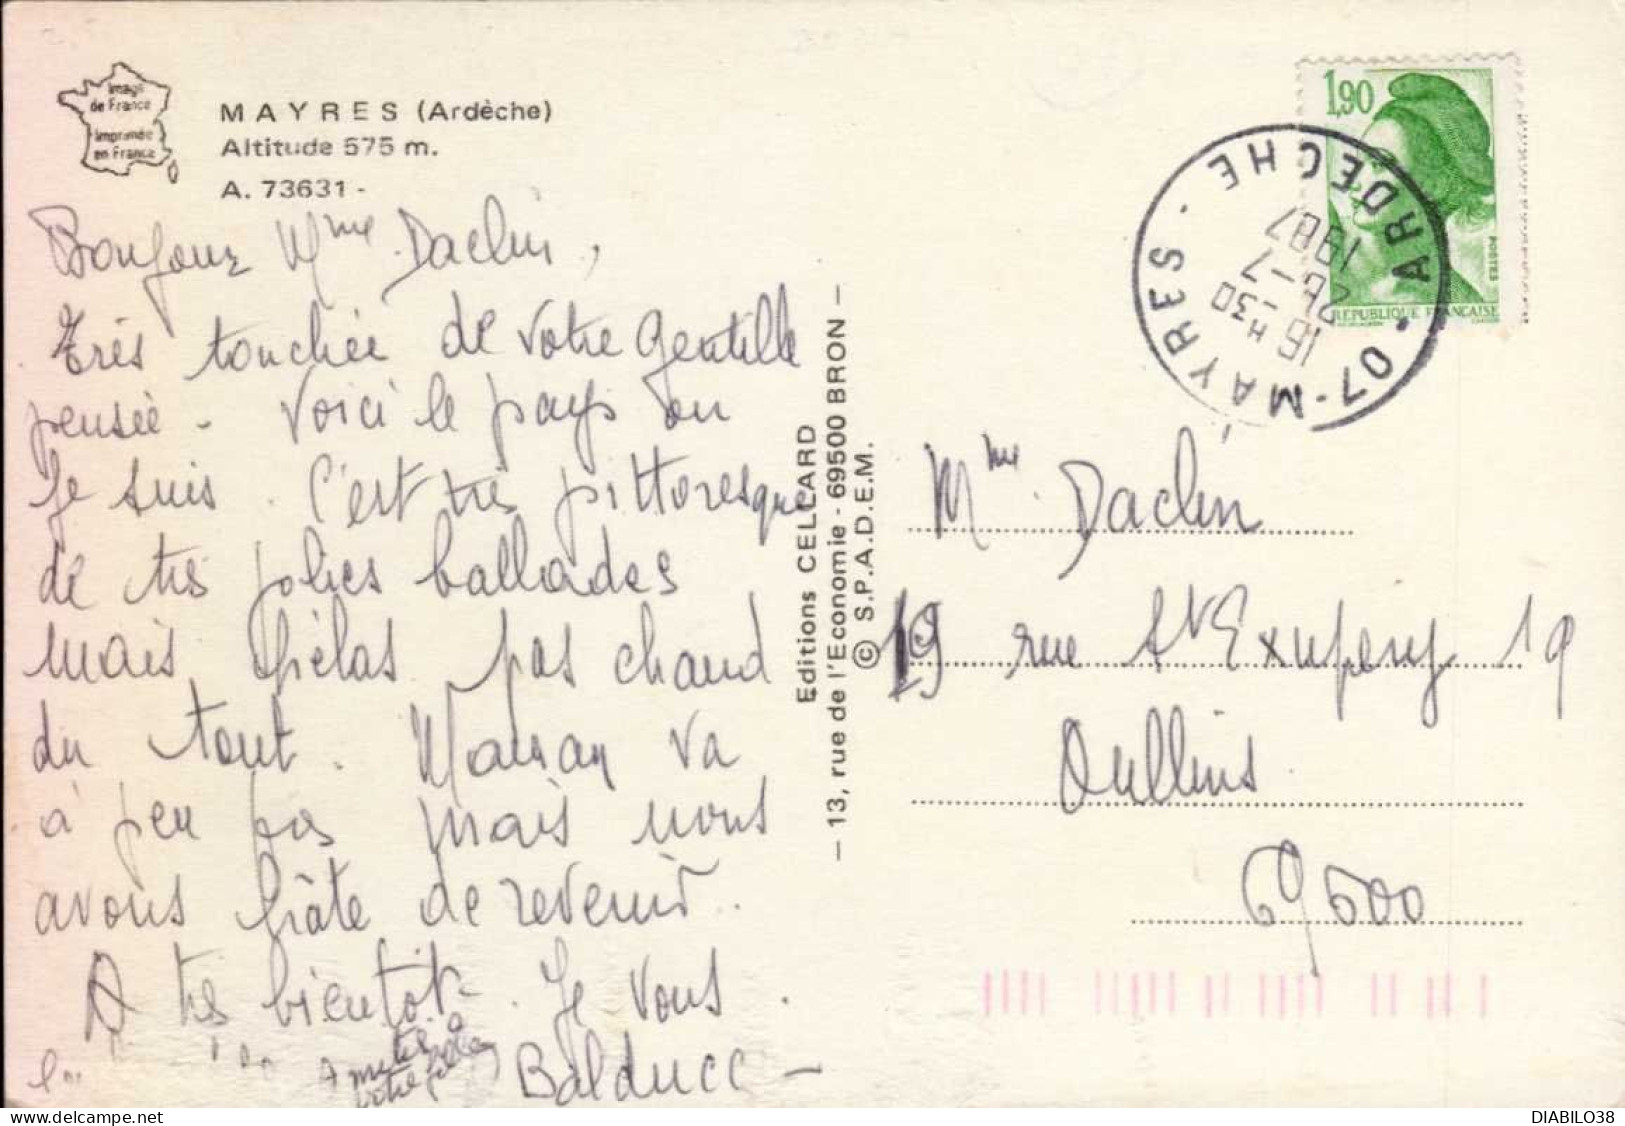 Image
de France
Imprimée
en France
MAYRES (Ardèche)
Altitude 575 m.
A. 73631 -
Bonjour Mme Daclin,
Très touchée de votre gentille
pensée - Voici le pays ou
Je suis. C'est très pittoresque
de très jolies ballades
mais hélas pas chaud
du tout. Maman va
à peu près mais nous
avons hâte de revenir.
A très bientôt. Je vous
Balducc -
Editions CELLARD
— 13, rue de l'Economie - 69500 BRON —
© S.P.A.D.E.M.
1,90
POSTES
REPUBLIQUE FRANCAISE
07 - MAYRES - ARDECHE
16 H 30
24 - 7
1987
Mme Daclin
19 rue St Exupery 19
Oullins
69500
DIABILO38